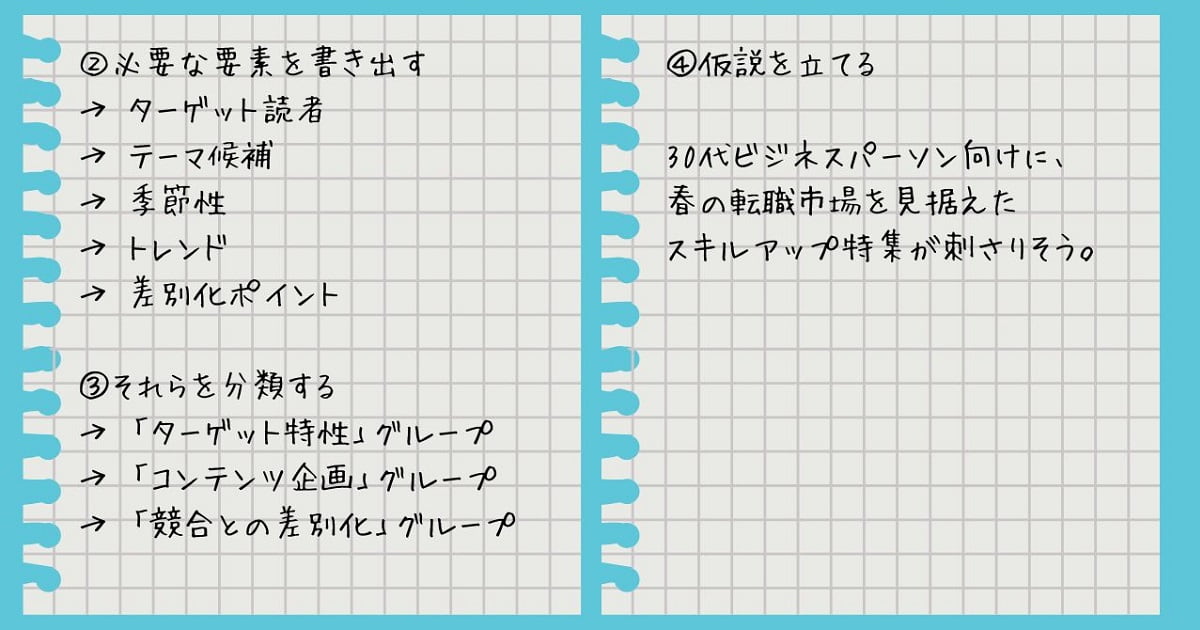 ②必要な要素を書き出す
→ ターゲット読者
→ テーマ候補
→ 季節性
→ トレンド
→ 差別化ポイント
③それらを分類する
→ 「ターゲット特性」グループ
→ 「コンテンツ企画」グループ
→ 「競合との差別化」グループ
④仮説を立てる
30代ビジネスパーソン向けに、
春の転職市場を見据えた
スキルアップ特集が刺さりそう。